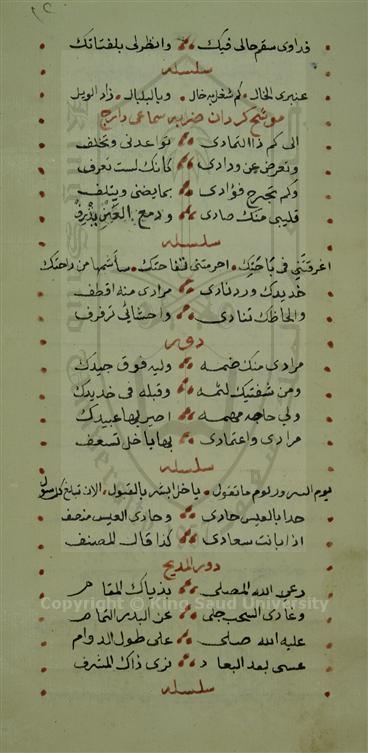 فداوى سقم حالى فيك وانظرلى بلفتاتك
سلسله
عنبرى الخال كم شغل به خال وبالبلبال زاد الويل
موشح كردان ضربه سماعى دارج
الى كم ذا التمادى تواعدنى وتخلف
وتعرض عن ودادى كأنك لست تعرف
وكم تجرح فؤادى بما يضنى ويتلف
قليبى منك صادى ودمع العين يذرف
سلسله
اغرقتنى فى احرمتنى تفاحتك سأشمها من راحتك
خديدك ورد نادى مرادى منه اقطف
والحاظك تنادى واحشائى ترفرف
دور
مرادى منك ضمه وليه فوق جيدك
ومن شفتيك لثمه وقبله فى خديدك
ولى حاجه مهمه اصير بها عبيدك
مرادى واعتمادى بها يا خل تسعف
سلسله
يوم السرور لوم ما تقول يا خل ابشر بالقبول الان تبلغ كل سول
حدا بالعيس حادى وحادى العيس منصف
اذا بانت سعادى كذا قال المصنف
دور المديح
رعى الله المصلى بذياك المقام
وغادى السحب جلى عن البدر التمام
عليه الله صلى على طول الدوام
عسى بعد البعاد نرى ذاك المشرف
سلسله
Copyright © King Saud University